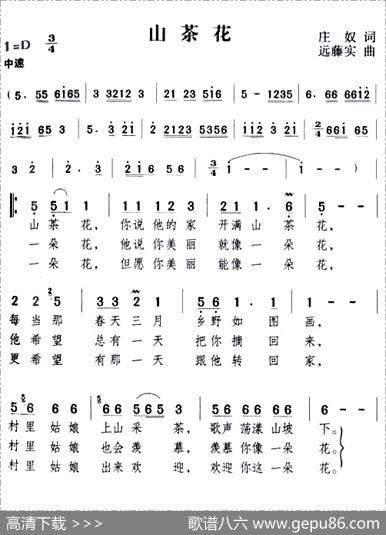 山茶花
1=D 3/4
庄奴 词
中速
远藤实 曲
(5. 55 6165 | 3 3212 3 | 21 2161 5615 | 5 - 1235 | 6. 66 5612 |
1121 653 | 5. 3 21 | 2 2123 5356 | 112 3 21 | 2/4 661 5 |
3 2 | 2. 3 | 2161 5 6 | 3/4 1 - - | 1 - - )
5 5 1 1 | 3 3 3 2 3 | 2 1 1 1. 6 | 5 - -
山茶花， 你说他的家 开满山茶花，
一朵花， 他说你美丽 就像一朵花，
一朵花， 但愿你美丽 能像一朵花，
2 2 5 | 3 3 2 1 | 5 6 6 1. 6 | 3 - -
每当那 春天三月 乡野如图画，
他希望 总有一天 把你摘回来，
更希望 有那一天 跟他转回家，
5 6 6 6 | 6 6 5 6 5 3 | 6 6 6 2 2 | 1 - -
村里姑娘 上山采茶， 歌声荡漾山坡下。
村里姑娘 也会羡慕， 羡慕你像一朵花。
村里姑娘 出来欢迎， 欢迎你这一朵花。
高清下载 >>>
歌谱八六 www.gepu86.com